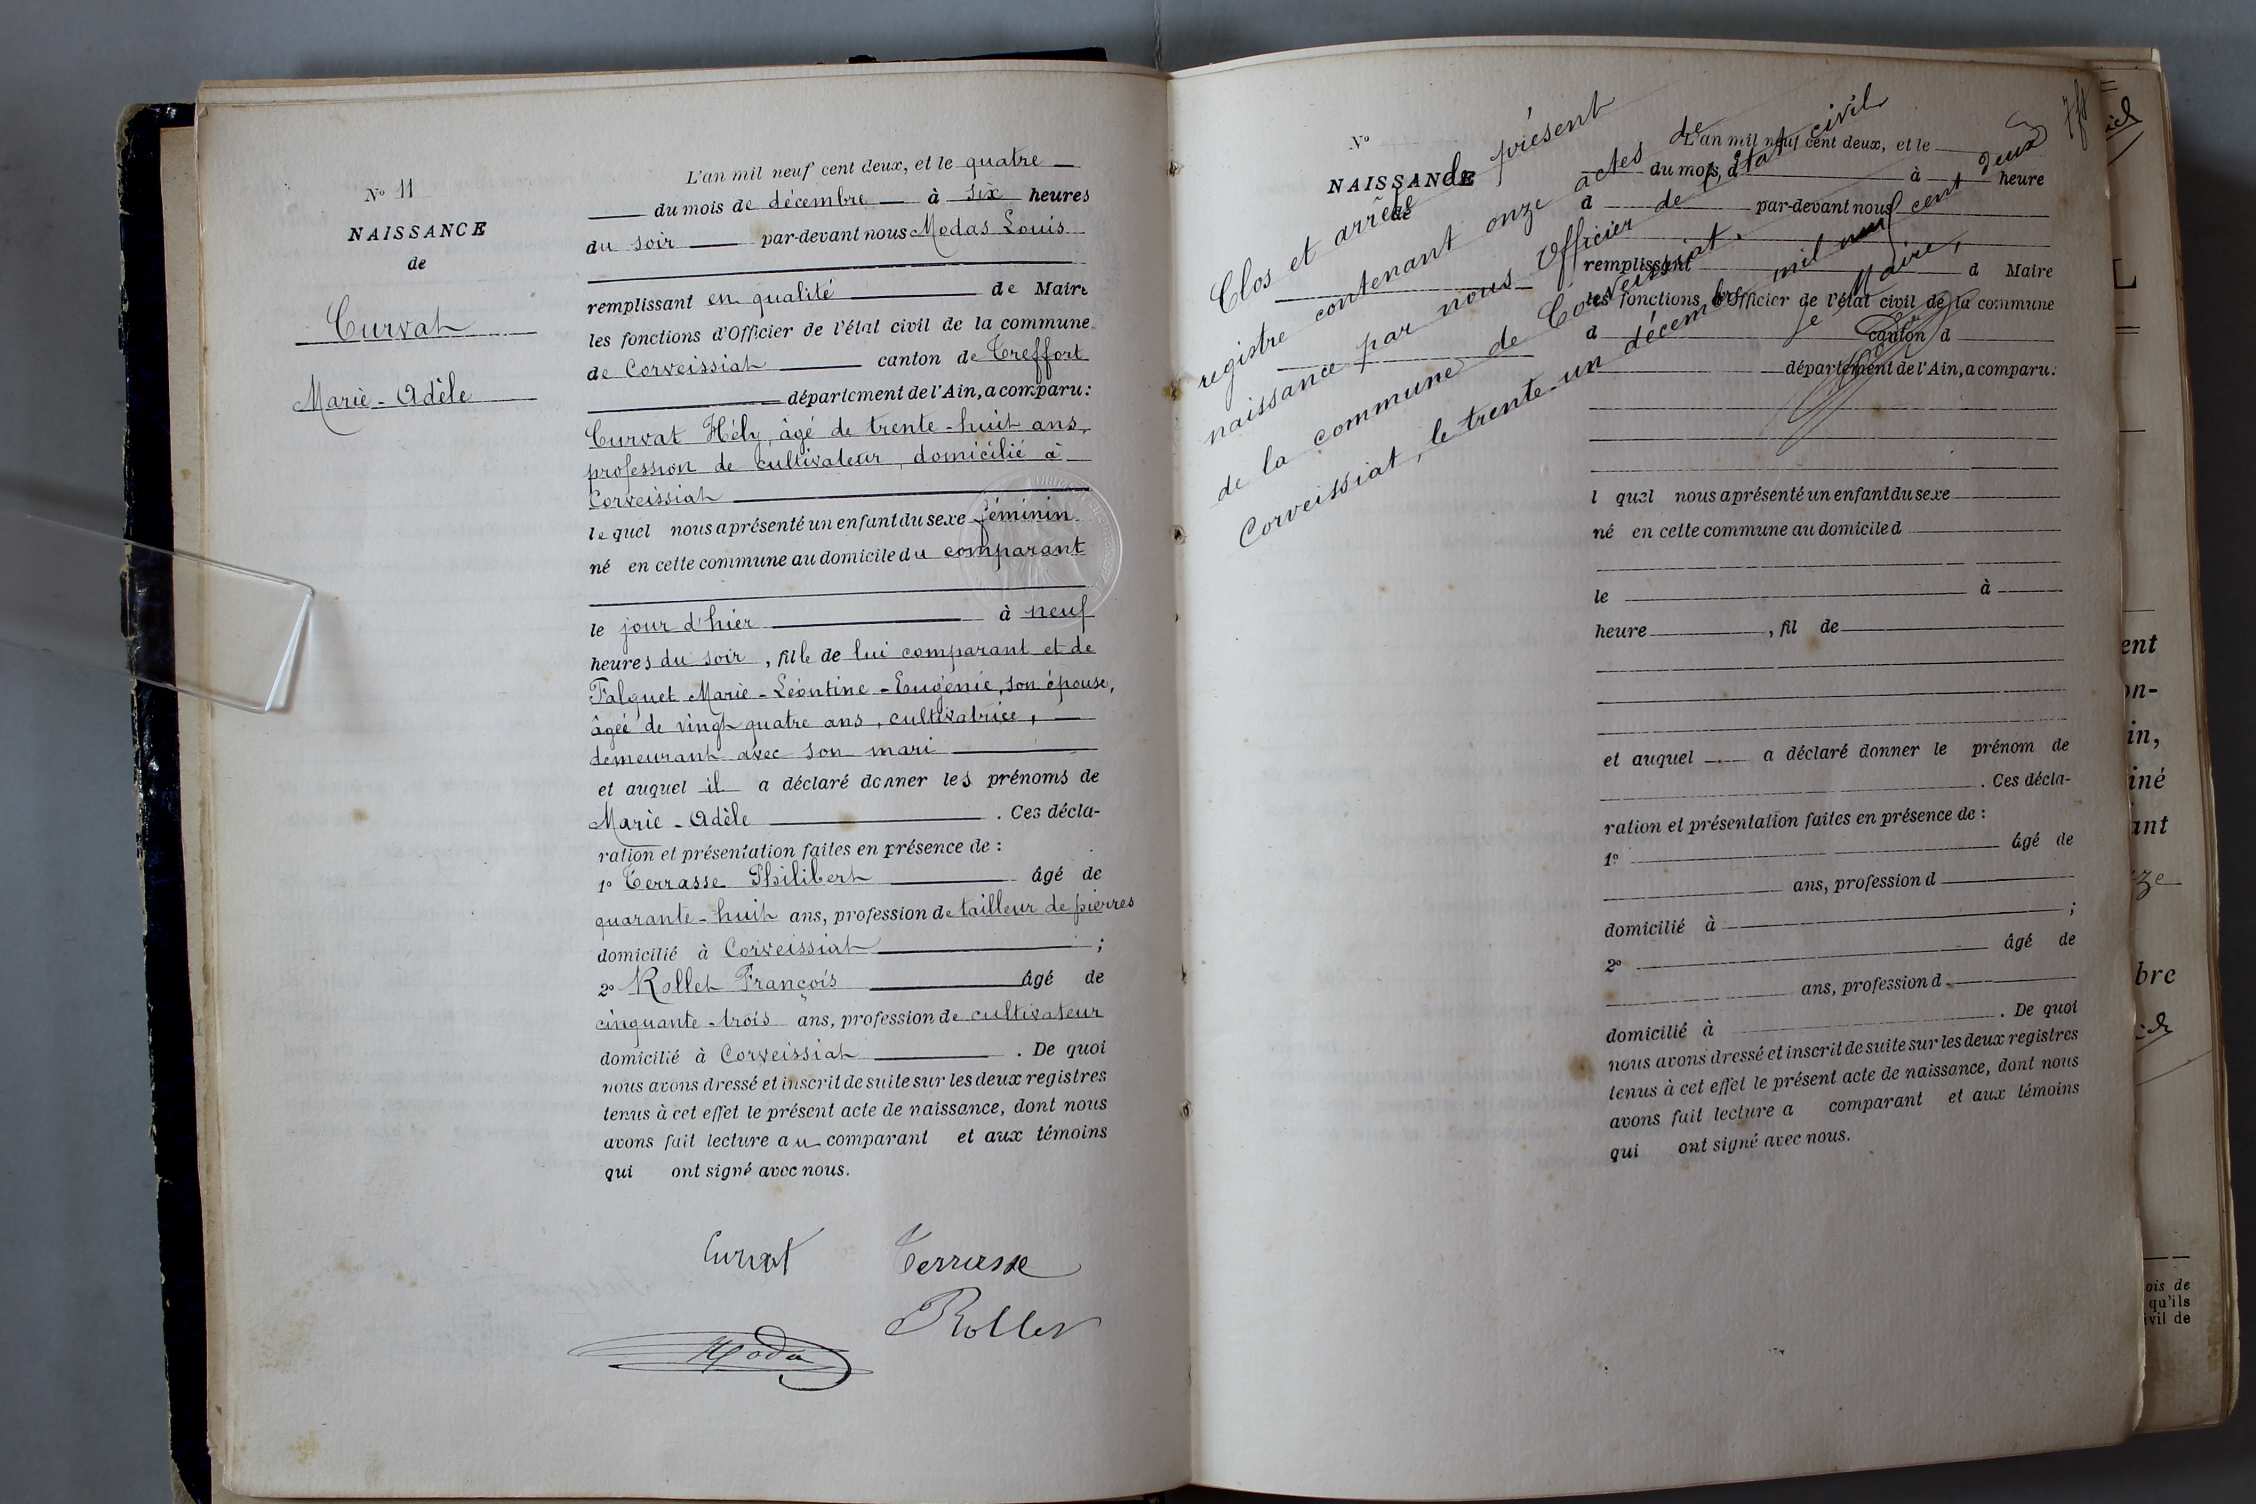 N° 11
NAISSANCE
de
Curvat
Marie-Adèle
L'an mil neuf cent deux, et le quatre
du mois de décembre à six heures
du soir par-devant nous Modas Louis
remplissant en qualité de Maire
les fonctions d'Officier de l'état civil de la commune
de Corveissiat canton de Treffort
département de l'Ain, a comparu:
Curvat Hély, âgé de trente-huit ans,
profession de cultivateur, domicilié à
Corveissiat
lequel nous a présenté un enfant du sexe féminin
né en cette commune au domicile du comparant
le jour d'hier à neuf
heures du soir, fille de lui comparant et de
Falquet Marie-Léontine-Eugénie, son épouse,
âgée de vingt quatre ans, cultivatrice,
demeurant avec son mari
et auquel il a déclaré donner les prénoms de
Marie-Adèle. Ces décla-
ration et présentation faites en présence de :
1° Terrasse Philibert âgé de
quarante-huit ans, profession de tailleur de pierres
domicilié à Corveissiat ;
2° Rollet François âgé de
cinquante-trois ans, profession de cultivateur
domicilié à Corveissiat. De quoi
nous avons dressé et inscrit de suite sur les deux registres
tenus à cet effet le présent acte de naissance, dont nous
avons fait lecture au comparant et aux témoins
qui ont signé avec nous.
Curvat Terrasse
Rollet
Modas
N°
NAISSANCE
de
Clos et arrêté le présent
registre contenant onze actes de
naissance par nous Officier de l'état civil
de la commune de Corveissiat.
Corveissiat, le trente-un décembre mil neuf cent deux
Le Maire,
L'an mil neuf cent deux, et le
du mois d à heure
d par-devant nous
remplissant d Maire
les fonctions d'Officier de l'état civil de la commune
d canton d
département de l'Ain, a comparu:
l quel nous a présenté un enfant du sexe
né en cette commune au domicile d
le à
heure , fil de
et auquel a déclaré donner le prénom de
. Ces décla-
ration et présentation faites en présence de :
1° âgé de
ans, profession d
domicilié à ;
2° âgé de
ans, profession d
domicilié à . De quoi
nous avons dressé et inscrit de suite sur les deux registres
tenus à cet effet le présent acte de naissance, dont nous
avons fait lecture a comparant et aux témoins
qui ont signé avec nous.
ent
on-
in,
iné
ant
bre
ois de
qu'ils
ivil de